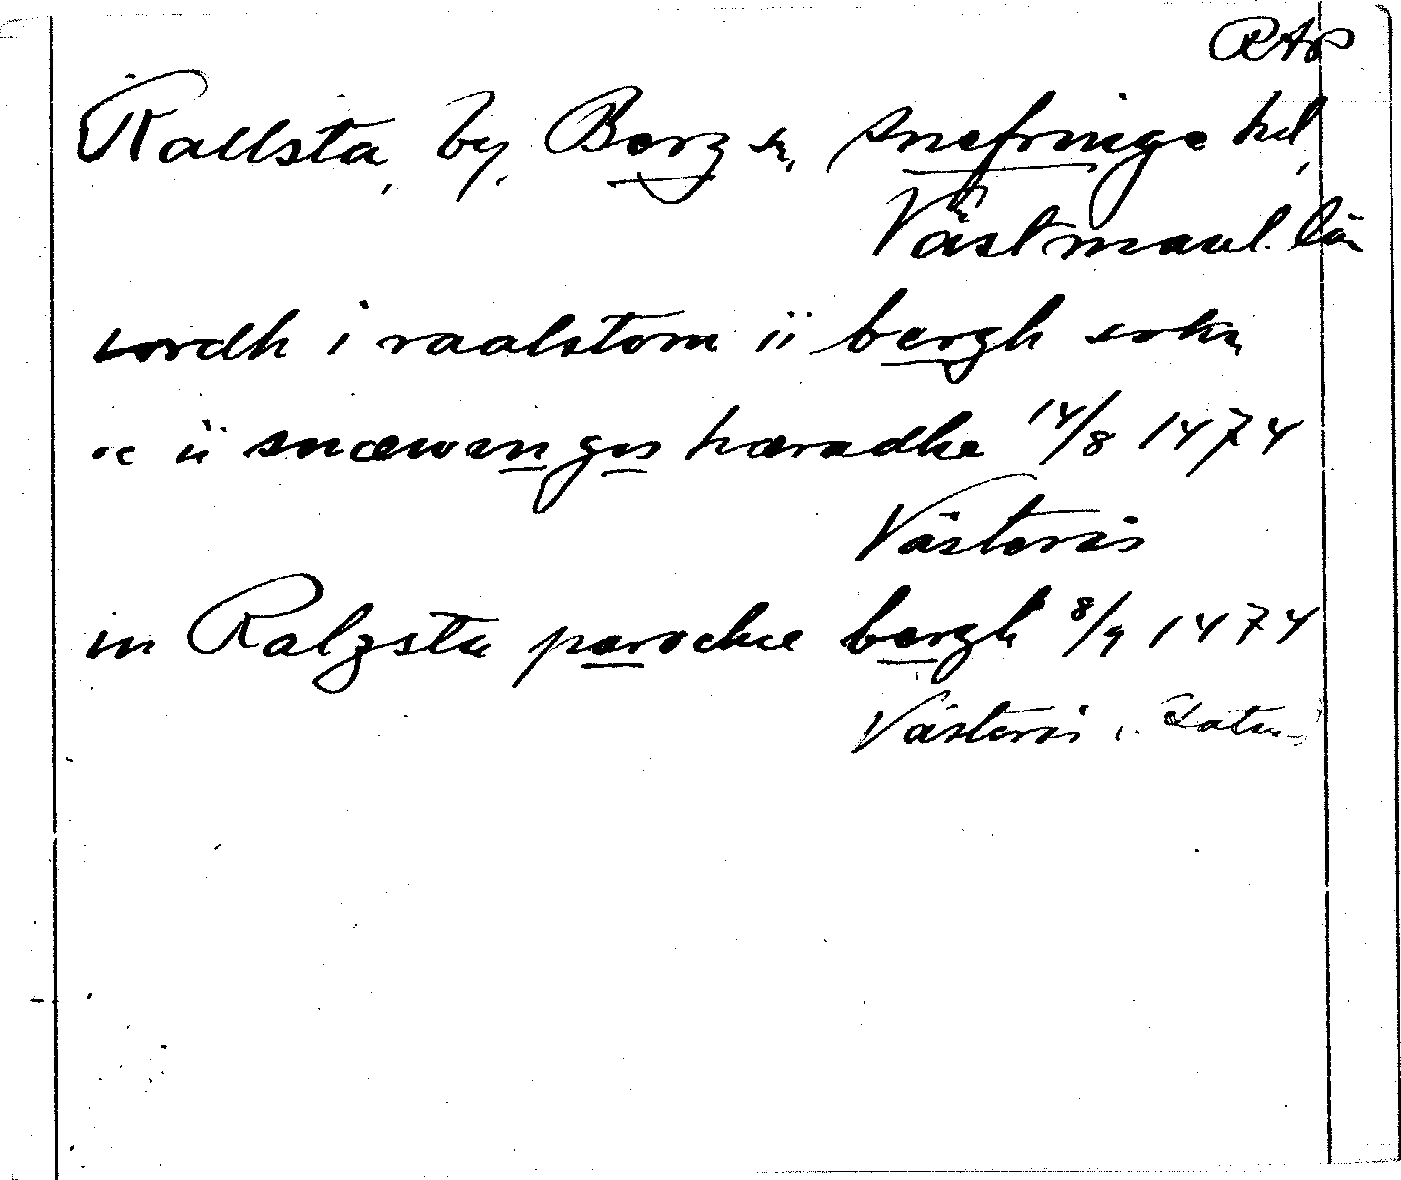 RAP
Rallsta, by, Berg sn, Snefringe hd,
Västmanl. län
iordh i raalstom ii bergh sokn
oc ii snæwingis hæradhe 14/8 1474
Västerås
in Ralzsta parochie bergh 8/9 1474
Västerås